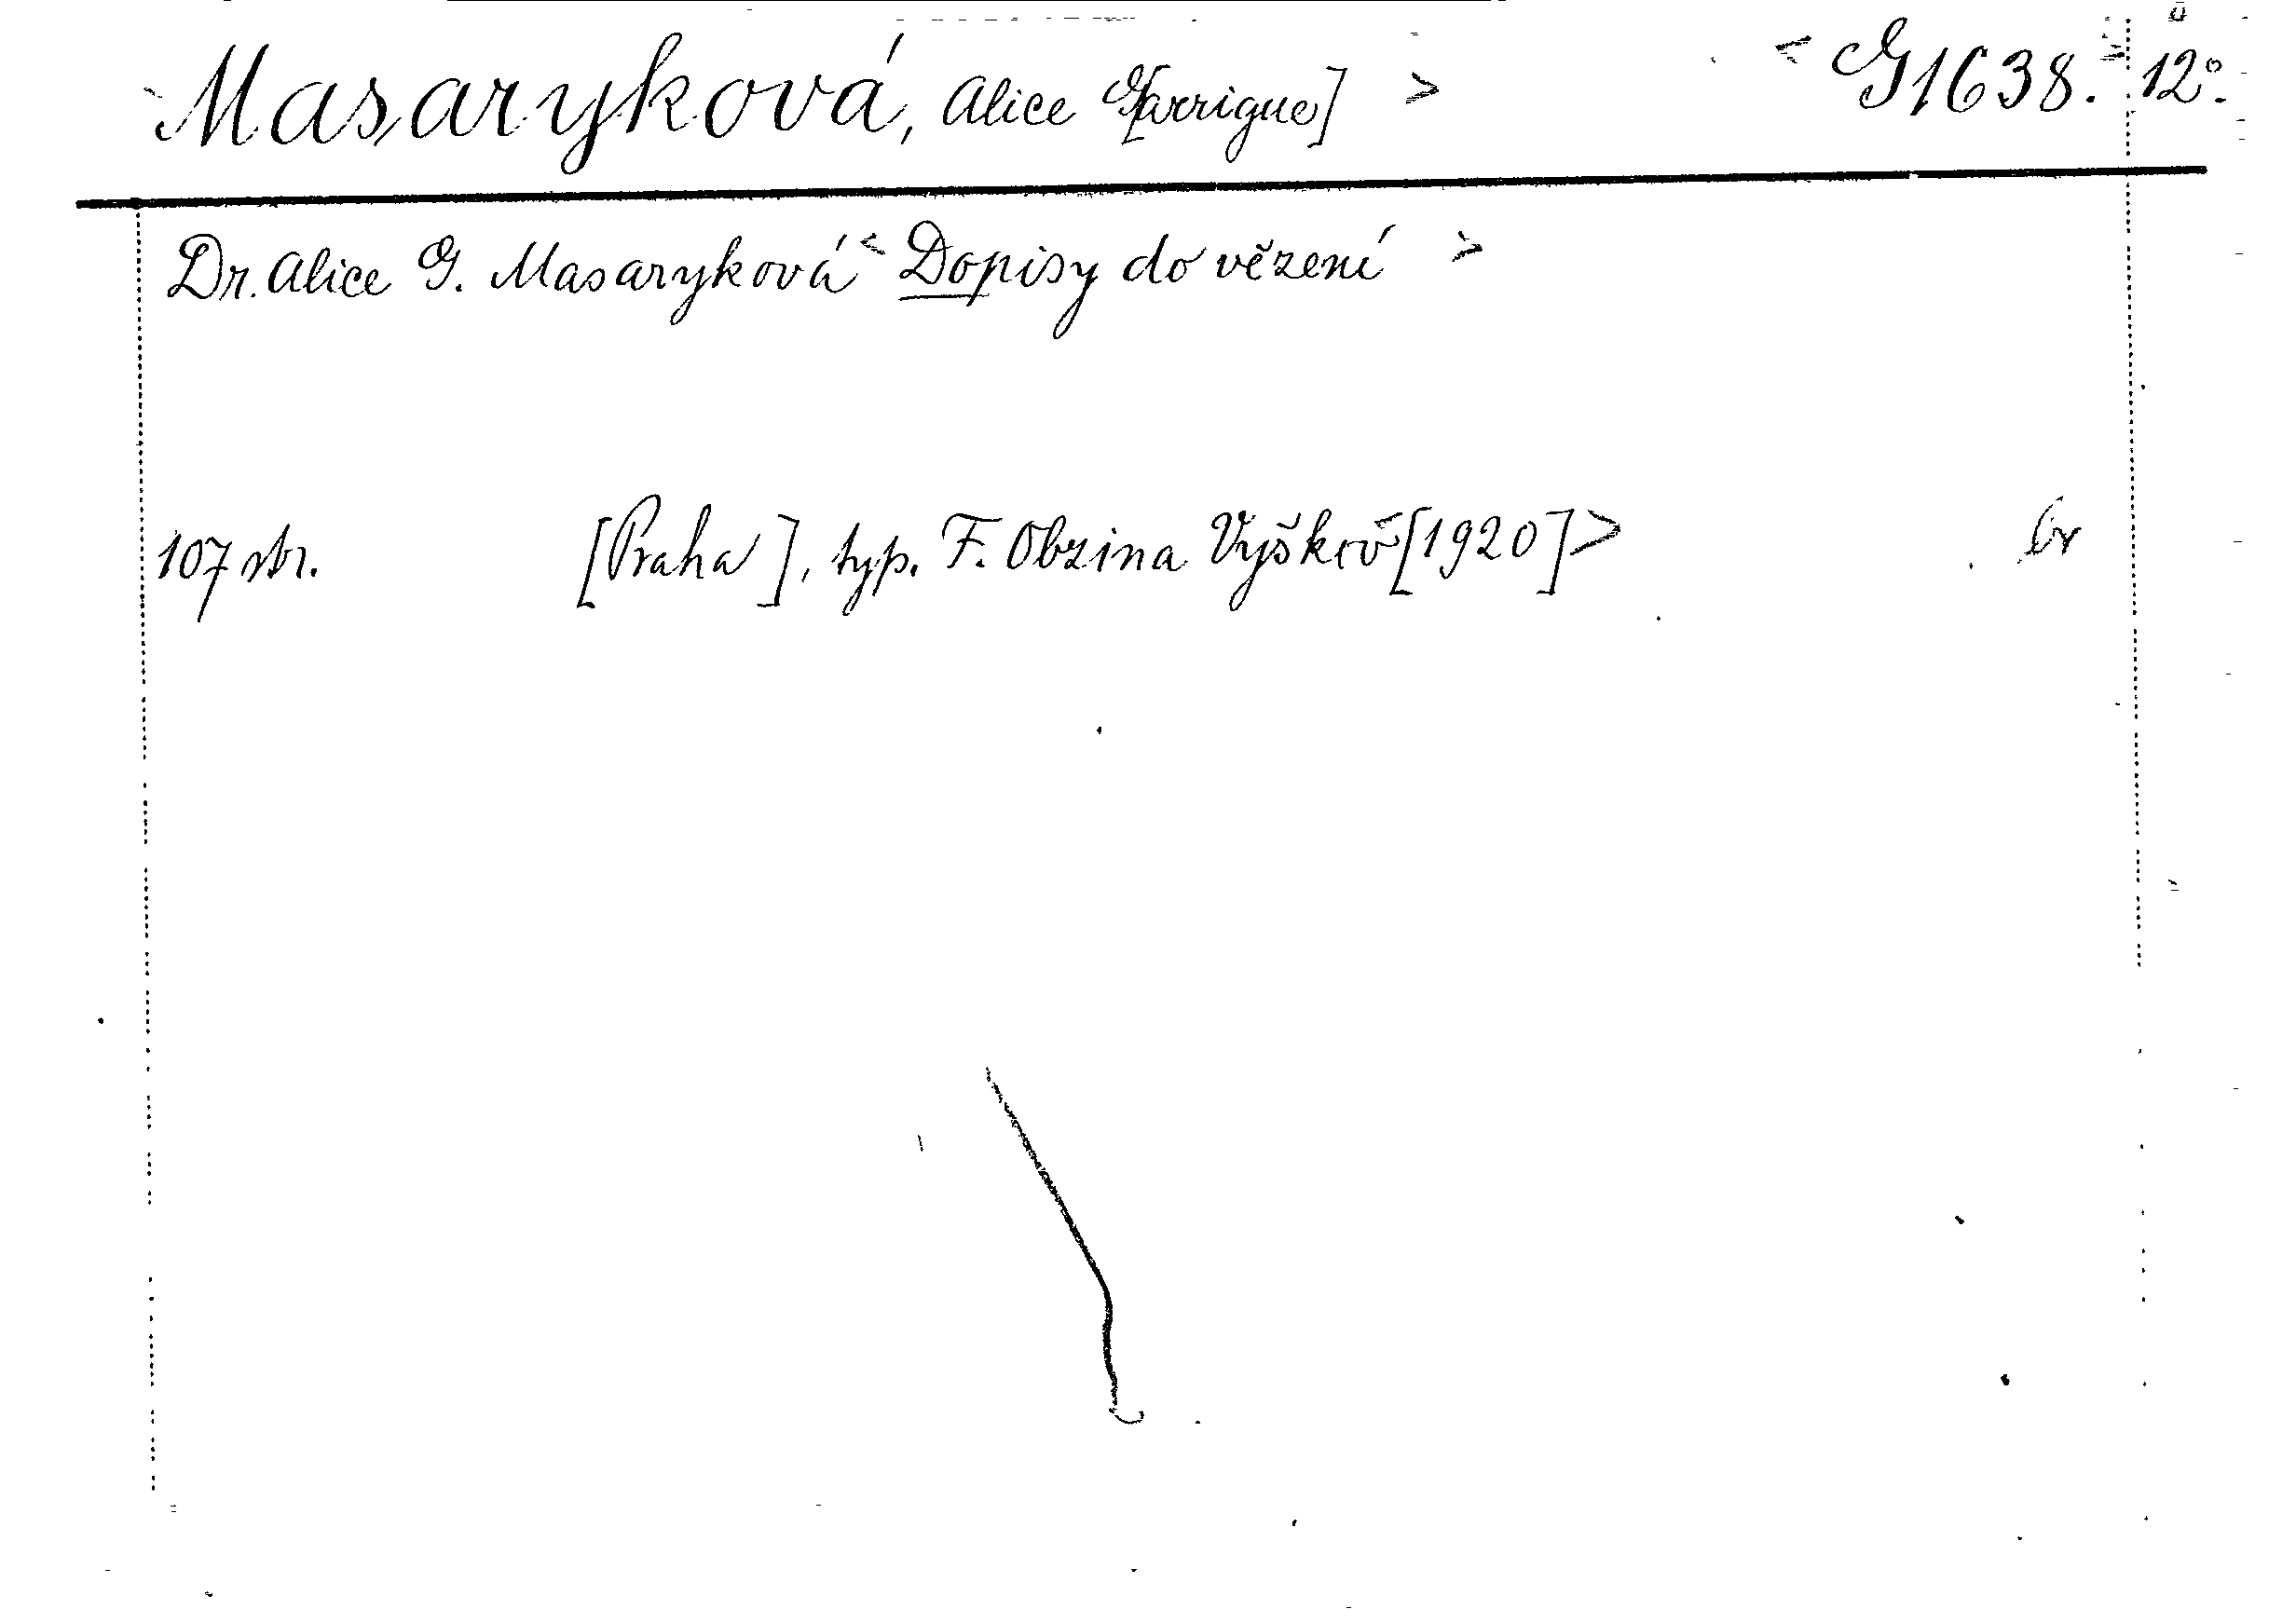 Masaryková, Alice G[arrigue] > < G 1638. > 12°.
Dr. Alice G. Masaryková < Dopisy do vězení >
107 str. [Praha], typ. F. Obzina Vyškov [1920] > br